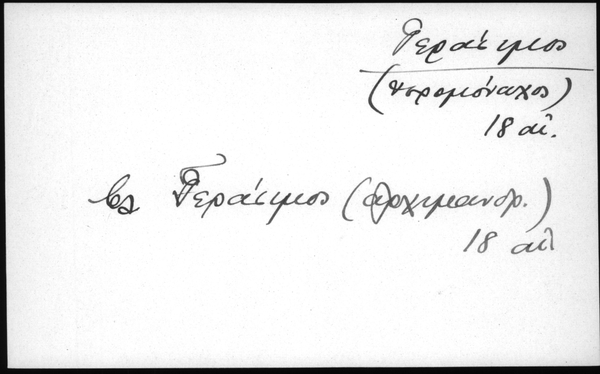 Γεράσιμος
(ιερομόναχος)
18 αἰ.
βλ Γεράσιμος (αρχιμανδρ.)
18 αἰ